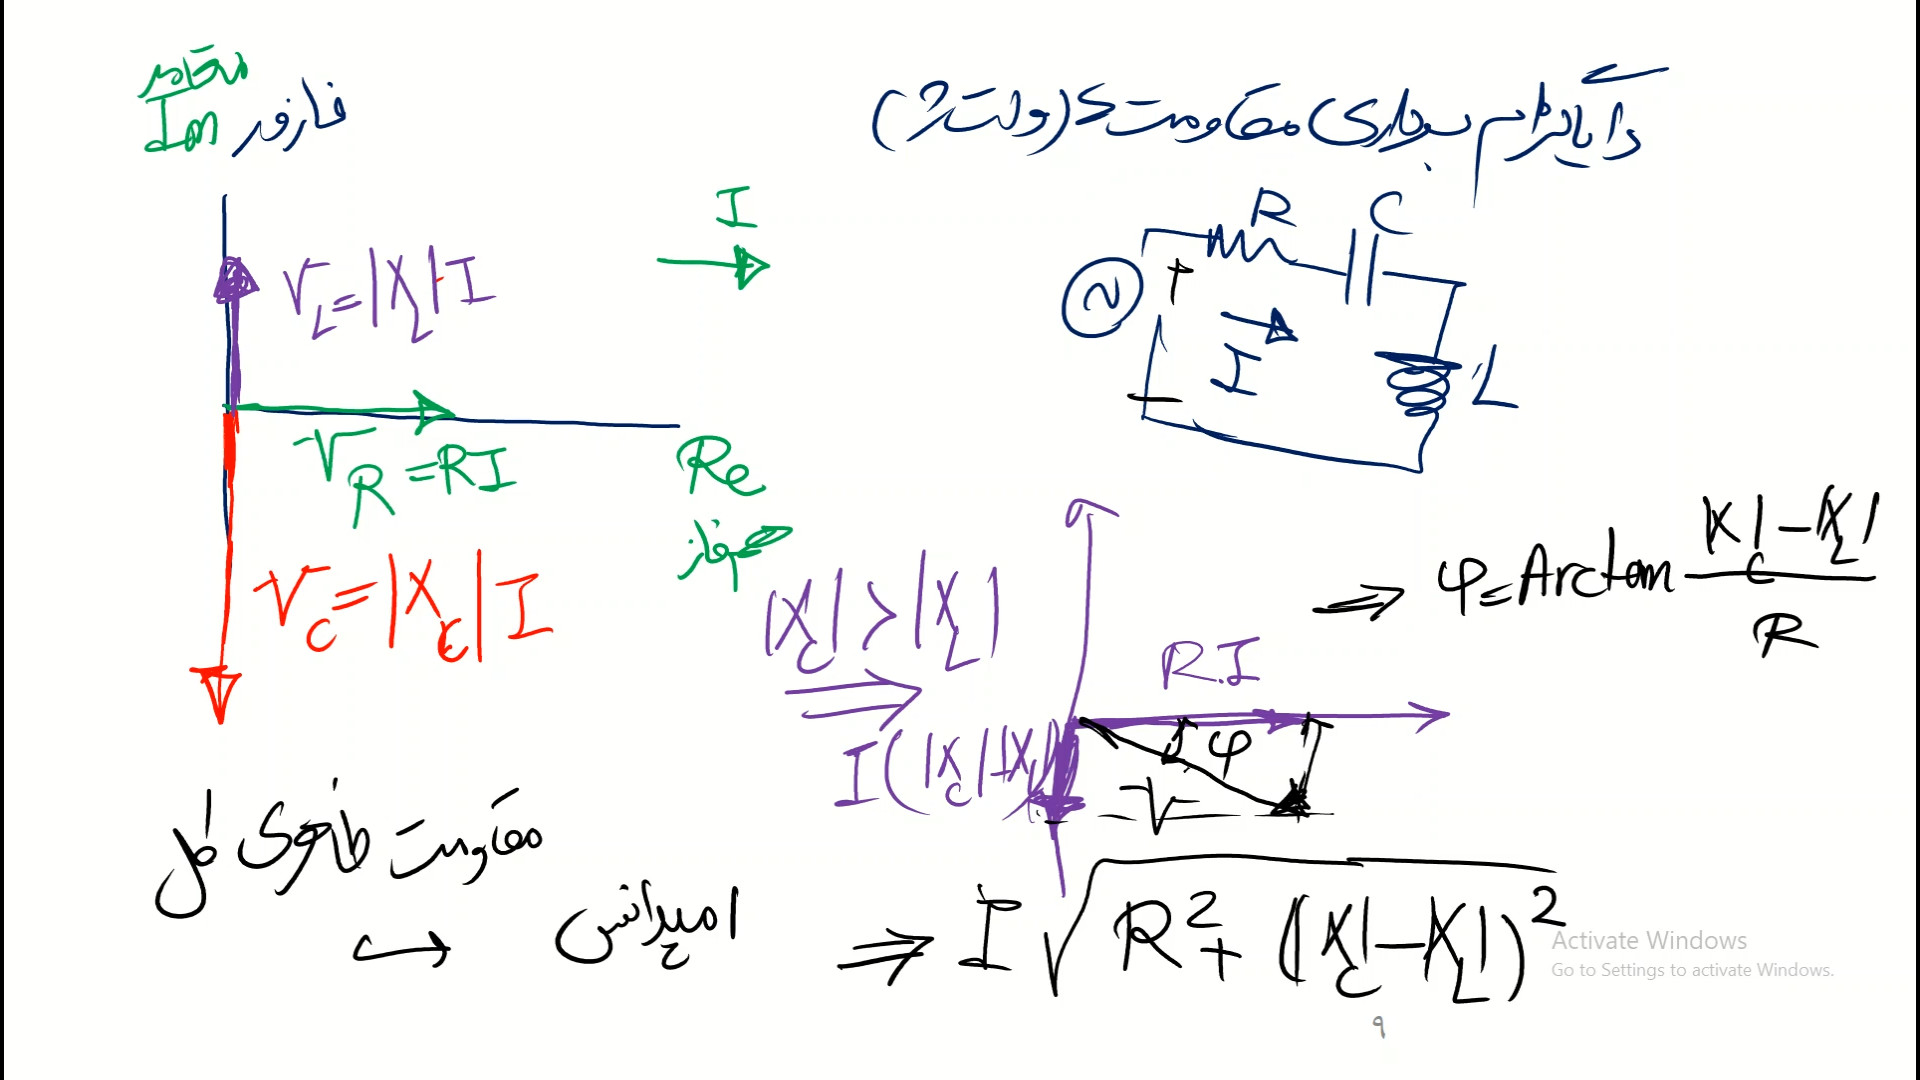 دیاگرام برداری مقاومت ها (ولتاژ)
فازور
Im
I
R C
V_L = |X_L| I
+
~
I
L
−
V_R = RI
Re
V_C = |X_C| I
|X_C| > |X_L|
⇒ φ = Arctan (|X_C| − |X_L|) / R
R.I
φ
I(|X_C| − |X_L|)
V
مقاومت ظاهری کل
↔ امپدانس
⇒ I √(R² + (|X_C| − |X_L|)²)
Activate Windows
Go to Settings to activate Windows.
۹